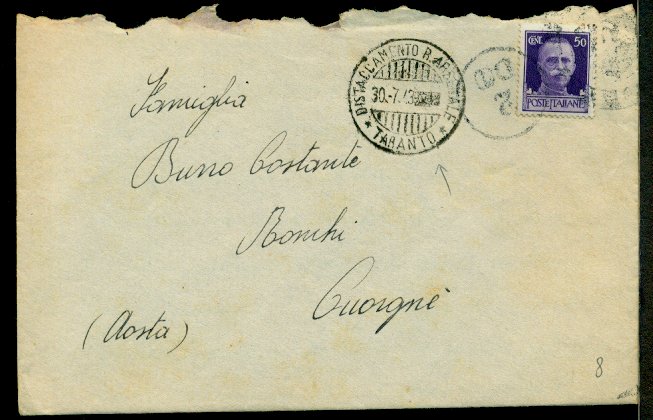 DISTACCAMENTO R. ARSENALE
30.-7.43
* TARANTO *
CENT. 50
POSTE ITALIANE
Famiglia
Buno Costante
Ronchi
Cuorgnè
(Aosta)
8